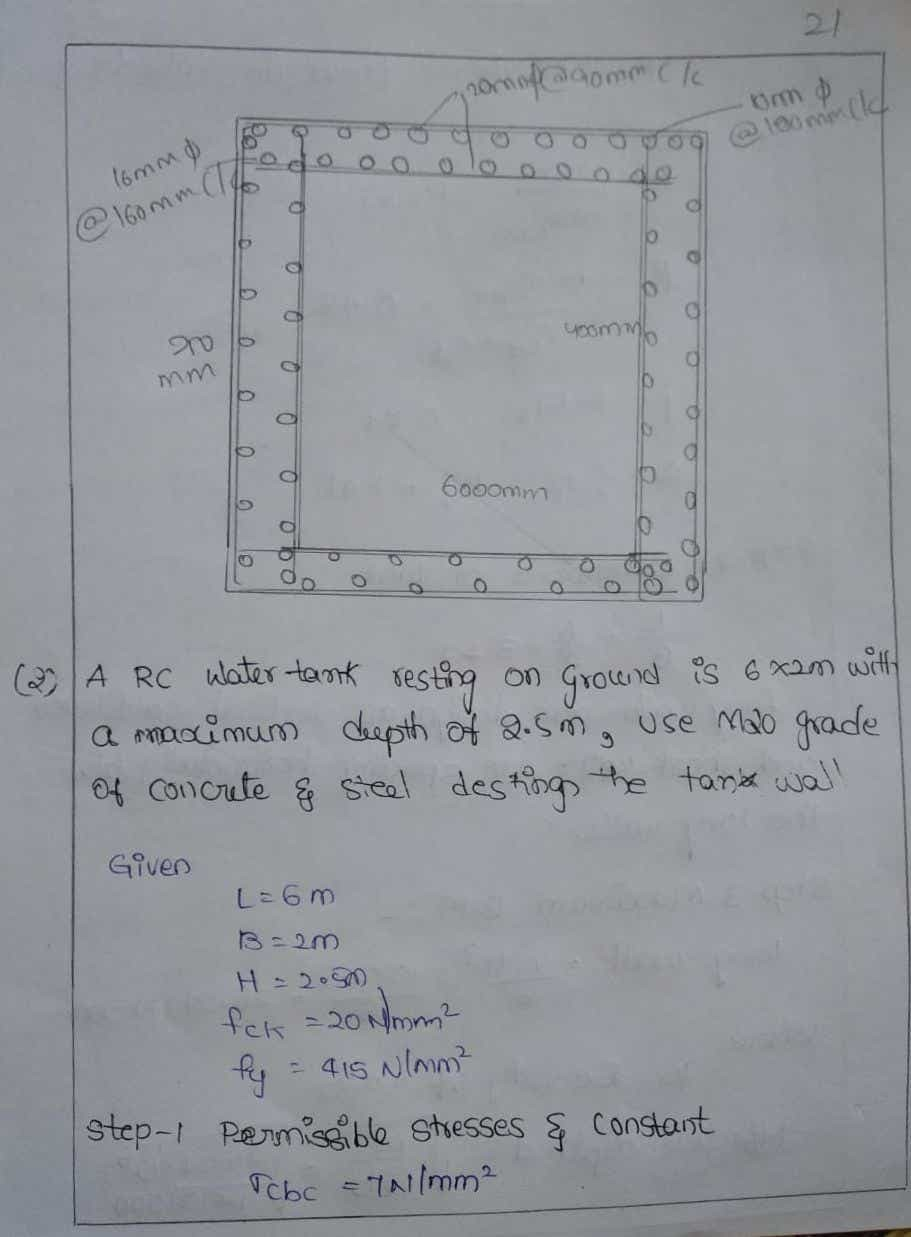 21
20mmϕ@90mm C/C
10mm ϕ
@180mm C/C
16mm ϕ
@160mm C/C
400mm
mm
6000mm
(2) A RC Water tank resting on Ground is 6x2m with
a maximum depth of 2.5m, use M20 grade
of concrete & steel destings the tank wall
Given
L = 6m
B = 2m
H = 2.5m
fck = 20 N/mm²
fy = 415 N/mm²
step-1 Permissible stresses & constant
σcbc = 7N/mm²